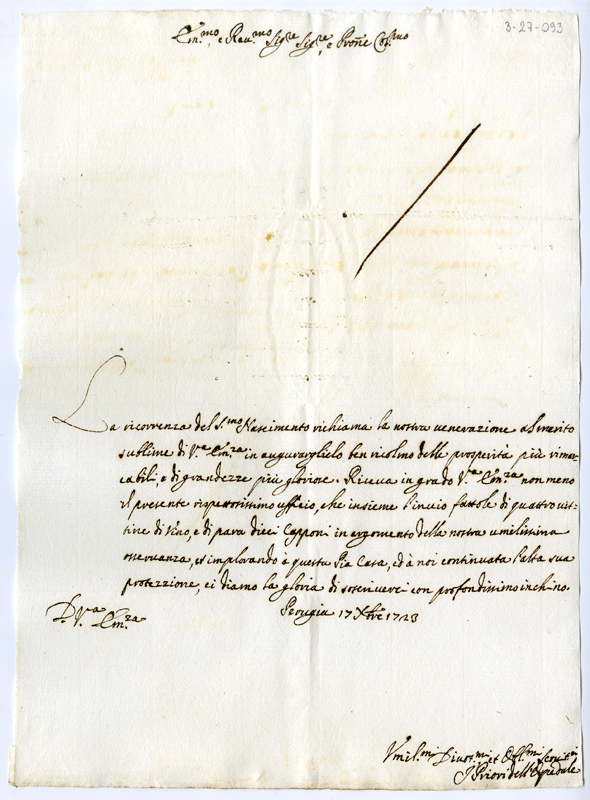 3-27-093
Em.mo, e Reu.mo Sig.re Sig.re, e Prone Col.mo
La ricorrenza del S.mo Nascimento richiama la nostra uenerazione al merito
sublime di V.ra Em.za in augurarglielo ben ricolmo delle prosperità più rimar-
cabili, e di grandezze più gloriose. Riceua in grado V.ra Em.za non meno
il presente rispettosissimo ufficio, che insieme l'inuio fattole di quattro uit-
tine di Vino, e di para dieci Capponi in argomento della nostra umilissima
osseruanza, et implorando à questa Pia Casa, ed à noi continuata l'alta sua
protezzione, ci diamo la gloria di soscriuerci con profondissimo inchino.
D. V.ra Em.za
Perugia 17 Xbre 1723
Vmil.mi Diuot.mi et Obl.mi Seru.ri
I Priori dell'Ospedale